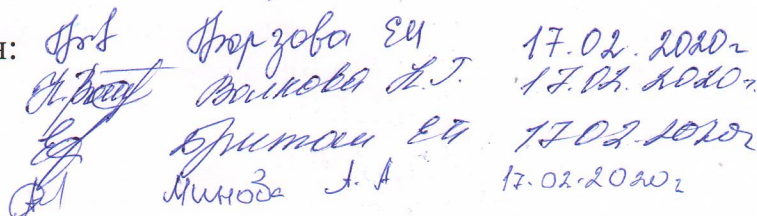 я: Бурзова ЕИ 17.02.2020г
Волкова Н.Г. 17.02.2020г.
Британ ЕИ 17.02.2020г
Минова А.А 17.02.2020г